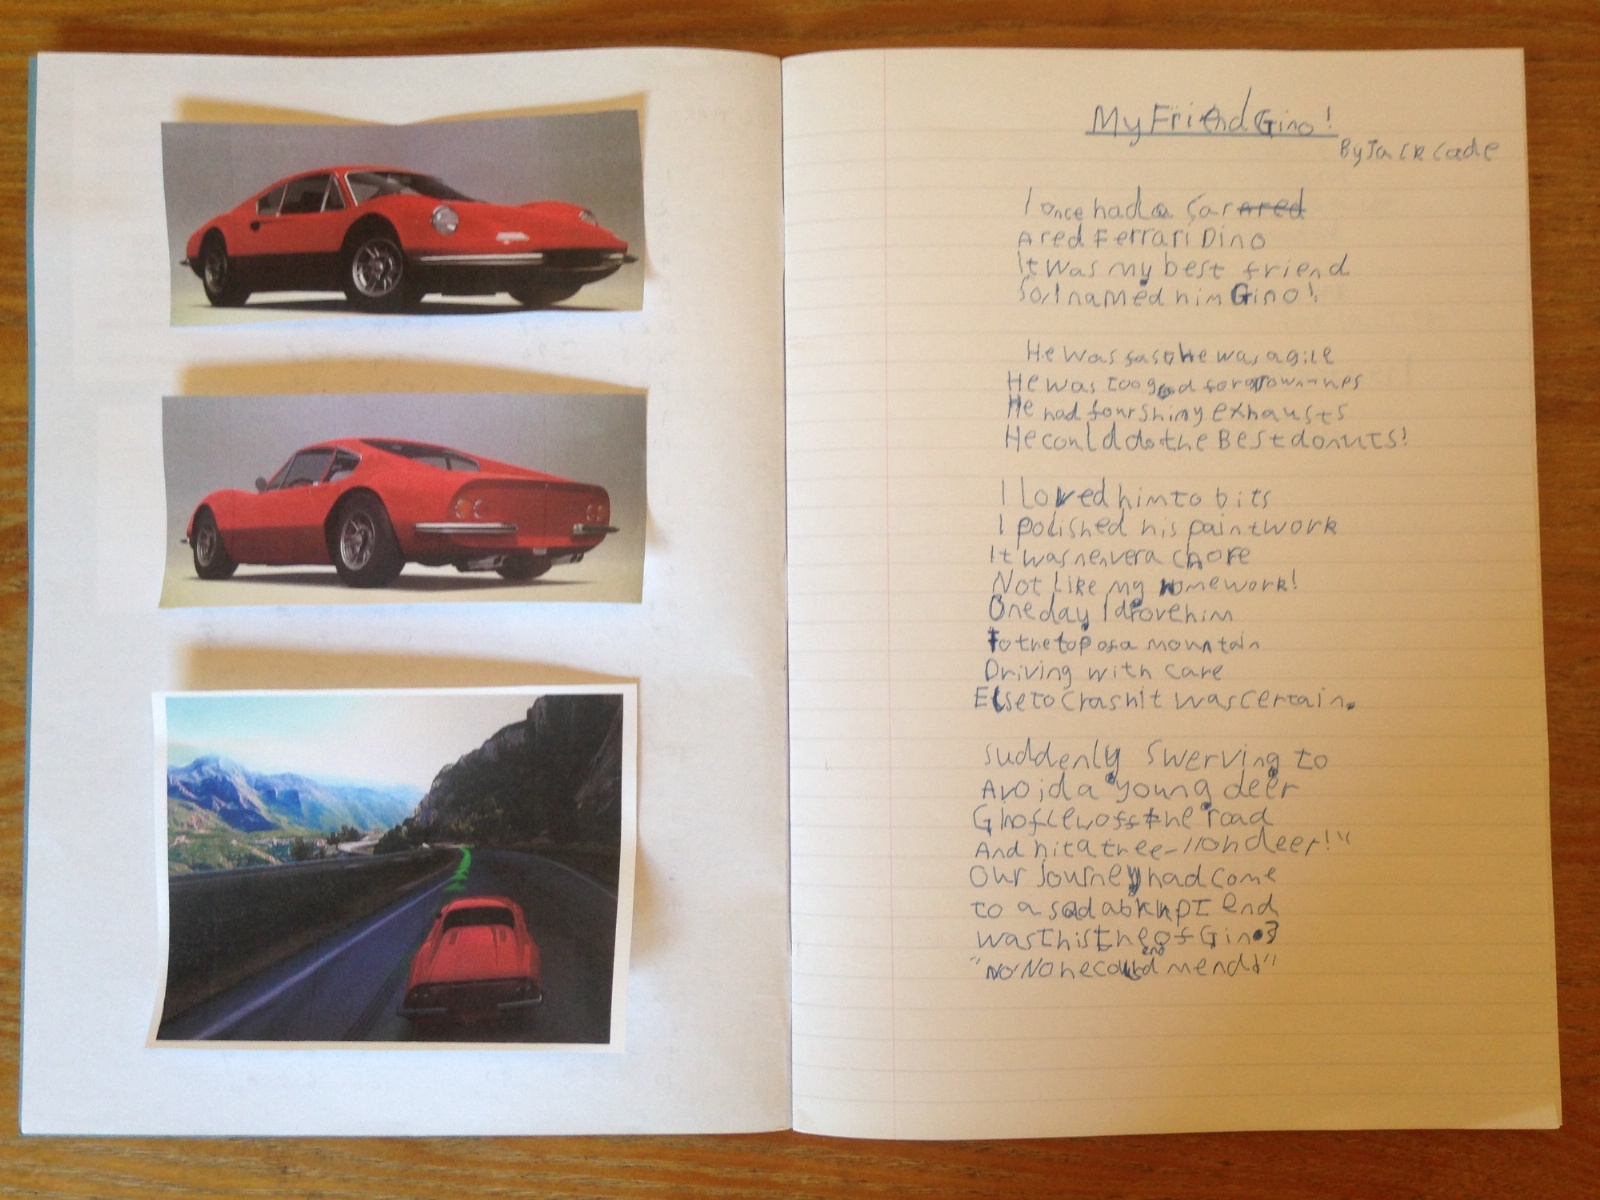 My Friend Gino!
By Jack Cade
I once had a car a red
A red Ferrari Dino
It was my best friend
So I named him Gino!
He was fast he was agile
He was too good for grown-ups
He had four shiny exhausts
He could do the Best donuts!
I loved him to bits
I polished his paintwork
It was never a chore
Not Like my homework!
One day I drove him
To the top of a mountain
Driving with care
Else to crash it was certain.
Suddenly Swerving to
Avoid a young deer
Gino flew off the road
And hit a tree-"oh deer!"
Our Journey had come
to a sad abrupt end
was this the end of Gino?
"No No he could mend!"